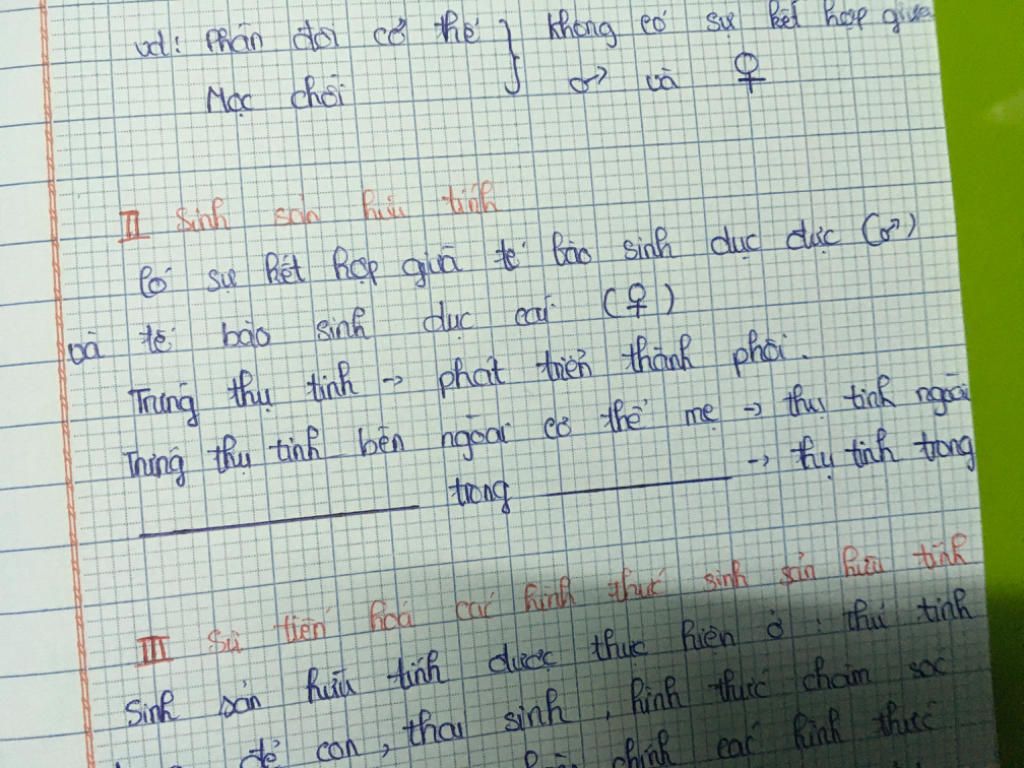 vd: Phân đôi cơ thể } không có sự kết hợp giữa
Mọc chồi } ♂ và ♀
II Sinh sản hữu tính
Có sự kết hợp giữa tế bào sinh dục đực (♂)
và tế bào sinh dục cái (♀)
Trứng thụ tinh → phát triển thành phôi.
Trứng thụ tinh bên ngoài cơ thể mẹ → thụ tinh ngoài
_____ trong _____ → thụ tinh trong
III Sự tiến hoá các hình thức sinh sản hữu tính
Sinh sản hữu tính được thực hiện ở: thụ tinh
đẻ con, thai sinh, hình thức chăm sóc
chỉnh các hình thức